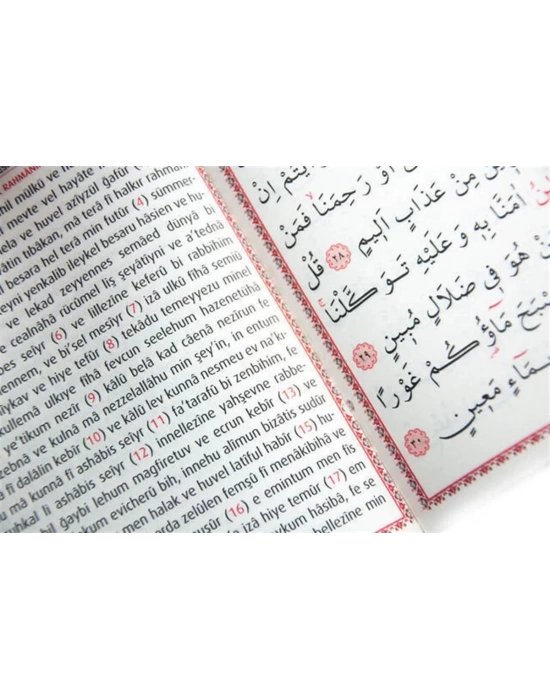 RAHMANI
mil mülkü ve
l meyte vel hayâte
ela ve huvel azîyzül gafûr
vâtin tıbâkan, mâ terâ fî halkır rahmâ
l besara hel terâ min futûr (4) sümmer-
eyni yenkalib ileykel besaru hâsien ve hu-
ve lekad zeyyennes semâed dünyâ bi
e cealnâhâ rücûmel liş şeyâtiyni ve a'tednâ
bes seiyr (6) ve lillezîne keferû bi rabbihim
ennem, ve bi'sel mesîyr (7) izâ ulkû fîhâ semiû
iykav ve hiye tefûr (8) tekâdu temeyyezu minel
kullemâ ulkıye fîhâ fevcun seelehum hazenetühâ
e'tikum nezîr (9) kâlû belâ kad câenâ nezîrun fe
zebnâ ve kulnâ mâ nezzelallâhu min şey'in, in entum
â fî dalâlin kebîr (10) ve kâlû lev kunnâ nesmeu ev na'k-
mâ kunnâ fî ashâbis seiyr (11) fa'terafû bi zenbihim, fe
uhkal li ashâbis seiyr (12) innellezîne yahşevne rabbe-
bil ğaybi lehum mağfiretuv ve ecrun kebîr (13) ve
kum evicherû bih, innehu alîmun bizâtis sudûr
men halak ve huvel latîful habîr (15) hu-
erda zelûlen femşû fî menâkibihâ ve
nuşûr (16) e emintum men fis
e izâ hiye temûr (17) em
aykum hâsibâ, fe se
bellezîne min
اِنْ
اَوْ رَحِمَنَا فَمَنْ
مِنْ عَذَابٍ اَلِيمٍ ﴿٢٨﴾ قُلْ
اٰمَنَّا بِهِ وَ عَلَيْهِ تَوَكَّلْنَا
هُوَ فِى ضَلَالٍ مُبِينٍ ﴿٢٩﴾
مَاؤُكُمْ غَوْرًا
مَعِينٍ ﴿٣٠﴾